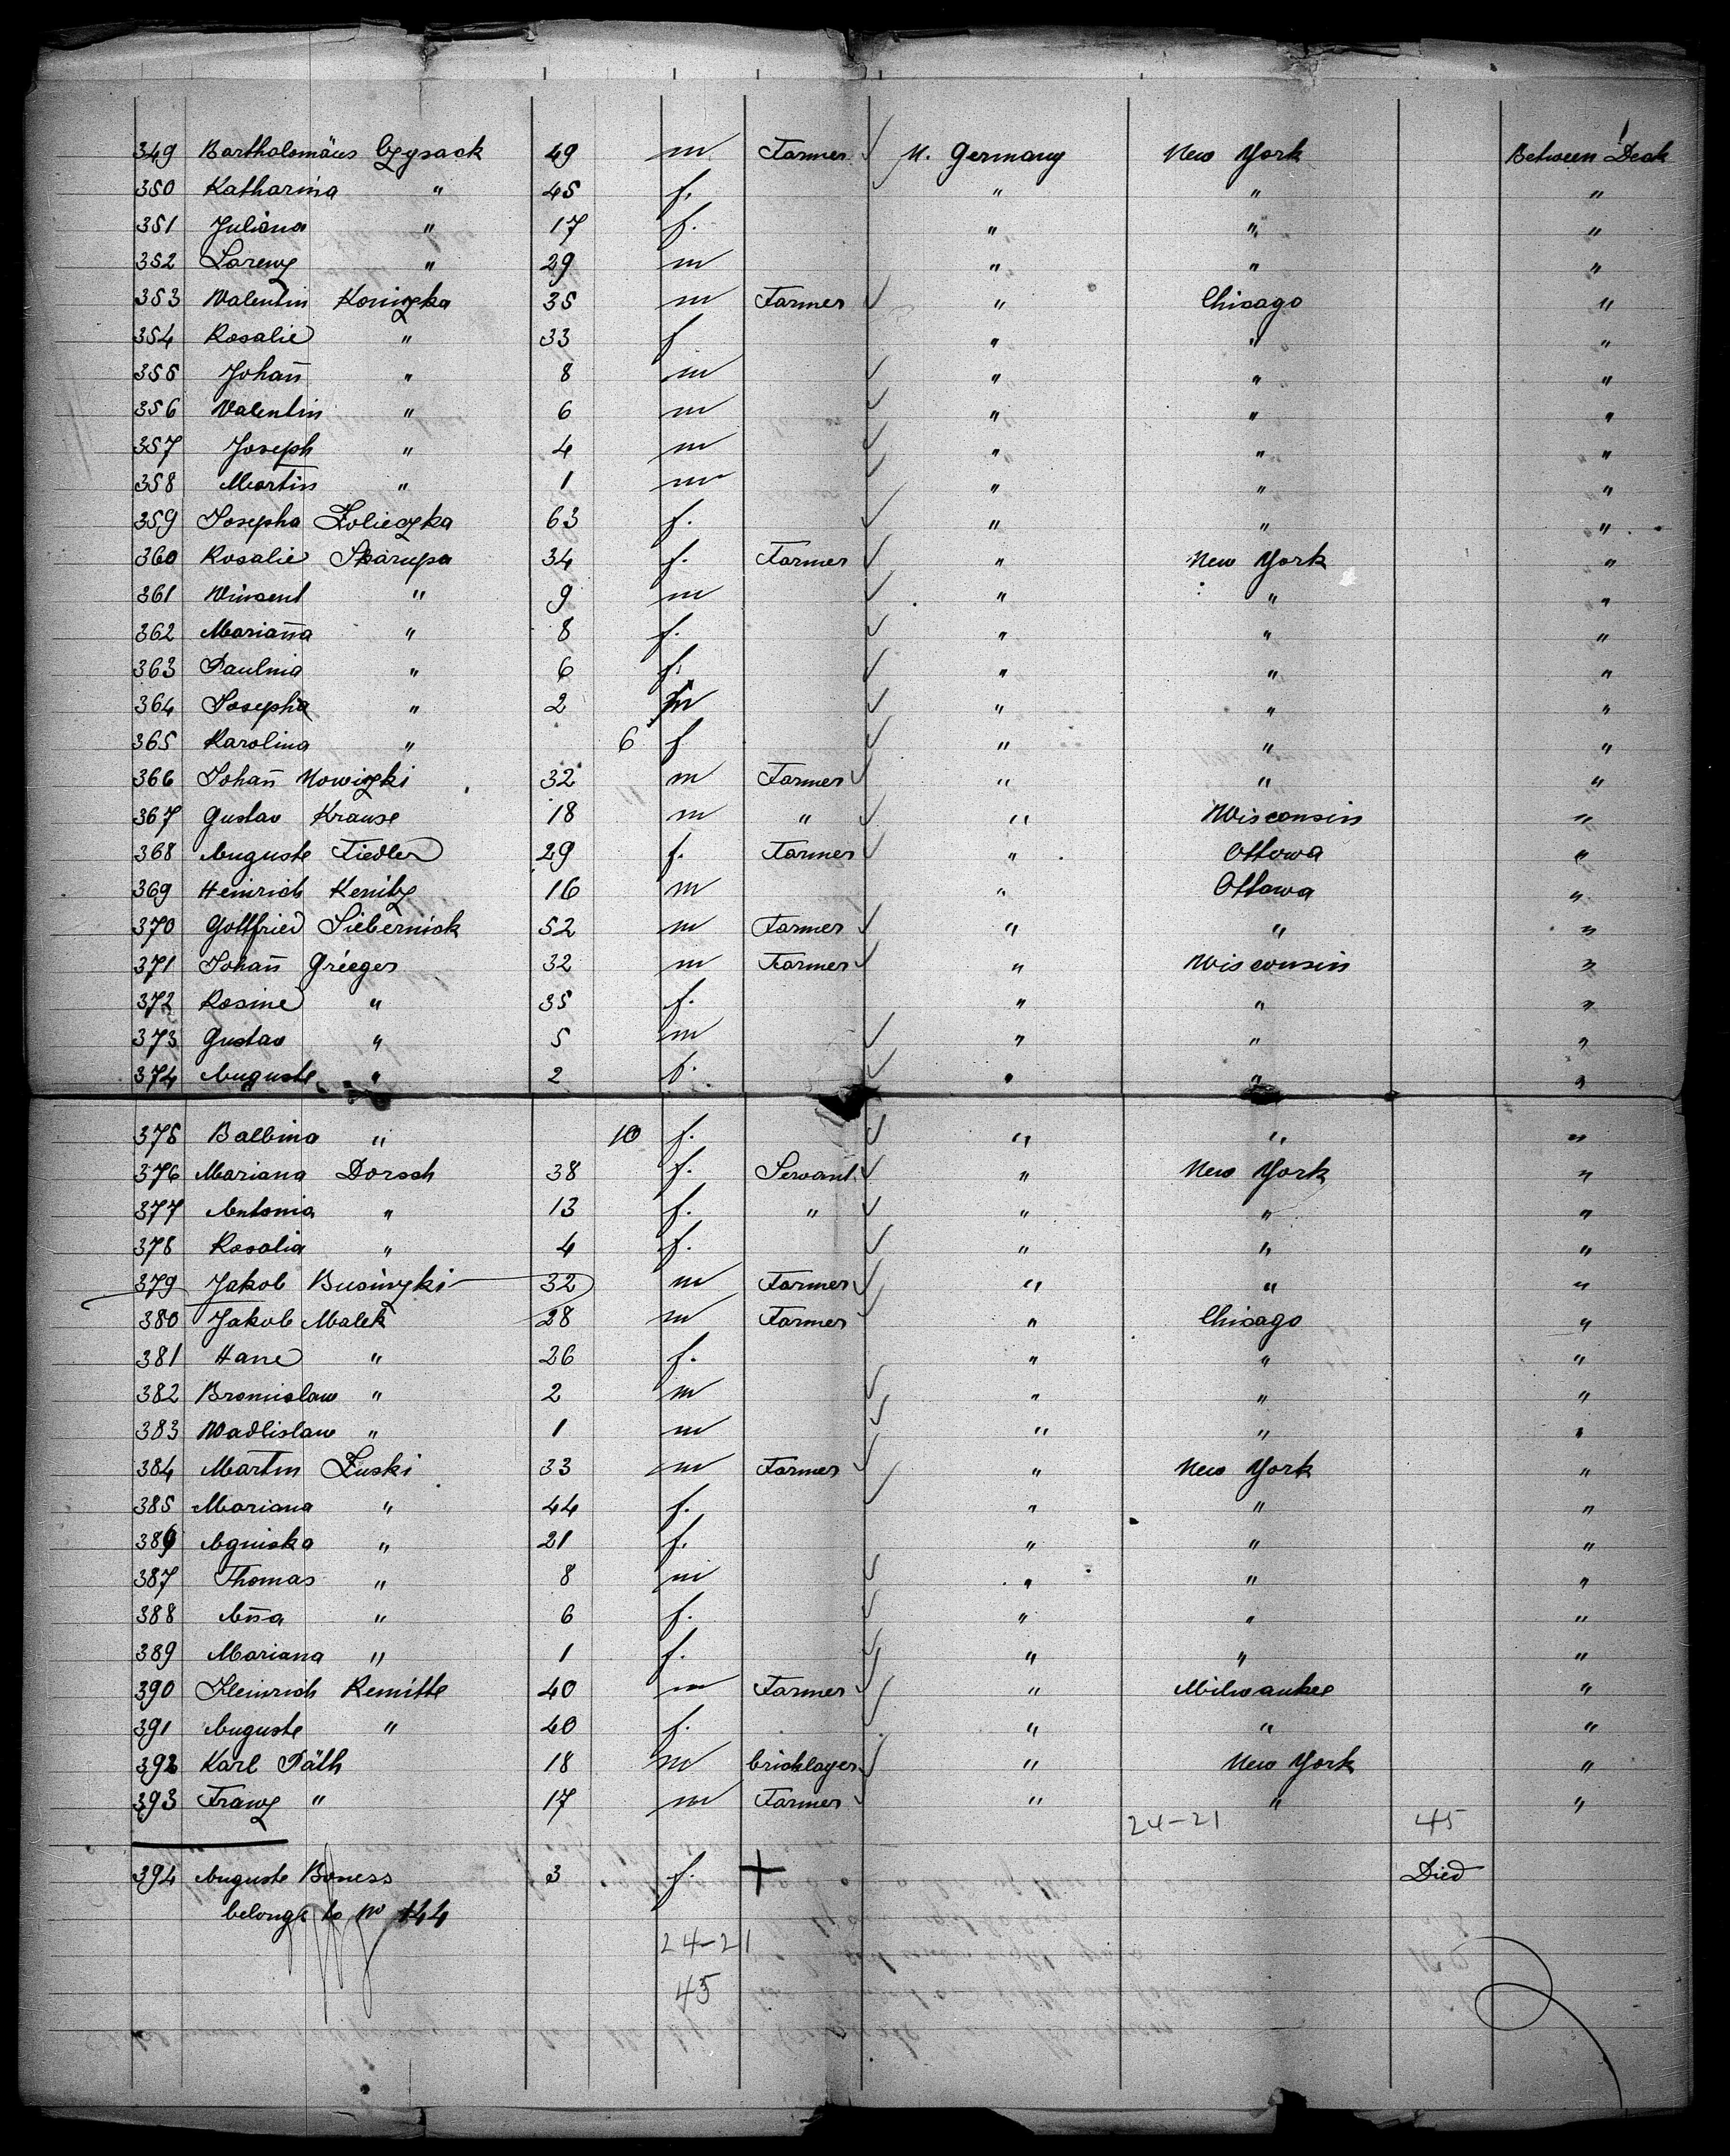 349 Bartholomäus Czysack 49 m. Farmer ✓ N. Germany New York Between Deck
350 Katharina " 45 f. " " "
351 Juliana " 17 f. " " "
352 Lorenz " 29 m " " "
353 Valentin Konizka 35 m Farmer ✓ " Chicago "
354 Rosalie " 33 f " " "
355 Johañ " 8 m ✓ " " "
356 Valentin " 6 m ✓ " " "
357 Joseph " 4 m ✓ " " "
358 Martin " 1 m ✓ " " "
359 Josepha Zolieczka 63 f. ✓ " " "
360 Rosalie Skarupa 34 f. Farmer ✓ " New York "
361 Winsent " 9 m ✓ " " "
362 Mariaña " 8 f. ✓ " " "
363 Paulina " 6 f. ✓ " " "
364 Josepha " 2 ✓ " " "
365 Karolina " 6 f ✓ " " "
366 Johañ Nowizki 32 m Farmer ✓ " " "
367 Gustav Krause 18 m " ✓ " Wisconsin "
368 Auguste Fiedler 29 f. Farmer ✓ " Ottowa "
369 Heinrich Kenitz 16 m " Ottawa "
370 Gottfried Siebernick 52 m Farmer ✓ " " "
371 Johañ Grieger 32 m Farmer ✓ " Wisconsin "
372 Rosine " 35 f. " " "
373 Gustav " 5 m ✓ " " "
374 Auguste " 2 f. ✓ " " "
375 Balbina " 10 f. ✓ " " "
376 Mariana Dorsch 38 f. Servant ✓ " New York "
377 Antonia " 13 f. " ✓ " " "
378 Rosalia " 4 f. ✓ " " "
379 Jakob Businzki 32 m Farmer ✓ " " "
380 Jakob Malek 28 m Farmer ✓ " Chicago "
381 Hane " 26 f. " " "
382 Bronislaw " 2 m ✓ " " "
383 Wadlislaw " 1 m ✓ " " "
384 Martin Zuski 33 m Farmer ✓ " New York "
385 Mariana " 44 f. ✓ " " "
386 Agniska " 21 f. " " "
387 Thomas " 8 m ✓ " " "
388 Aña " 6 f. ✓ " " "
389 Mariana " 1 f. ✓ " " "
390 Heinrich Remitte 40 m Farmer ✓ " Milwaukee "
391 Auguste " 40 f. ✓ " " "
392 Karl Päth 18 m bricklayer ✓ " New York "
393 Franz " 17 m Farmer ✓ " " "
24-21 45
394 Auguste Boness 3 f. + Died
belongs to No 144
24-21
45